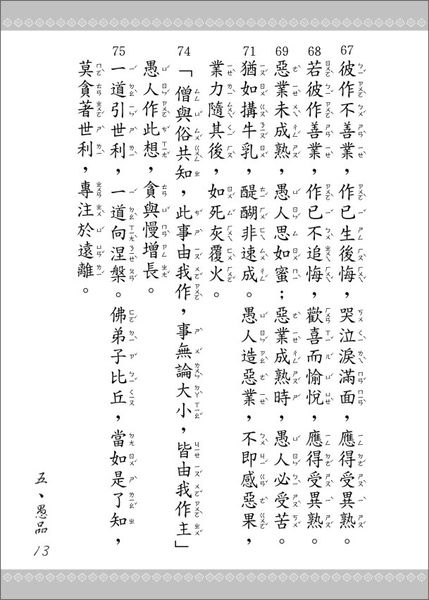 67 彼作不善業，作已生後悔，哭泣淚滿面，應得受異熟。
68 若彼作善業，作已不追悔，歡喜而愉悅，應得受異熟。
69 惡業未成熟，愚人思如蜜；惡業成熟時，愚人必受苦。
71 猶如搆牛乳，醍醐非速成。愚人造惡業，不即感惡果，
業力隨其後，如死灰覆火。
74 「僧與俗共知，此事由我作，事無論大小，皆由我作主」
愚人作此想，貪與慢增長。
75 一道引世利，一道向涅槃。佛弟子比丘，當如是了知，
莫貪著世利，專注於遠離。
五、愚品
13